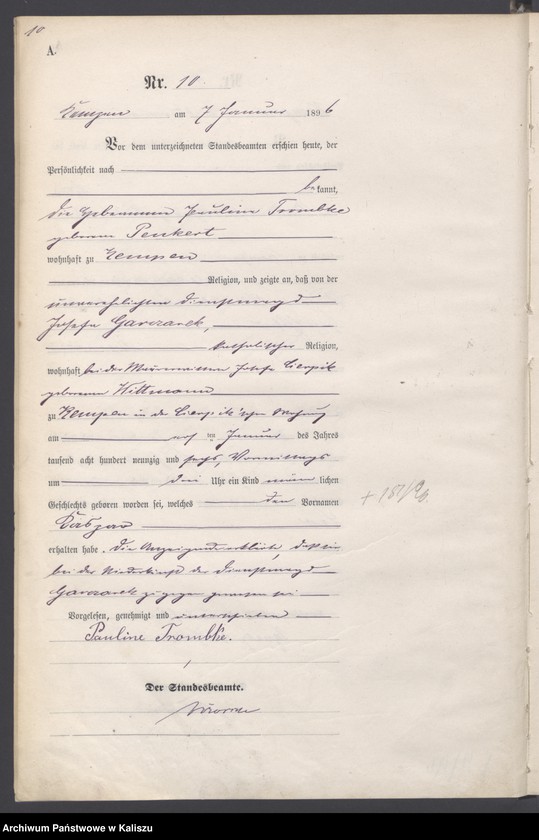 10
A.
Nr. 10.
Kempen am 7 Januar 1896
Vor dem unterzeichneten Standesbeamten erschien heute, der
Persönlichkeit nach
bekannt,
die Hebamme Pauline Trombke
geborene Penkert
wohnhaft zu Kempen
Religion, und zeigte an, daß von der
unverehelichten Dienstmagd
Josefa Garczarek,
katholischer Religion,
wohnhaft bei der Josefa Cierpik
geborenen Wittmann
zu Kempen in der Cierpik'schen Wohnung
am ten Januar des Jahres
tausend acht hundert neunzig und sechs, Vormittags
um drei Uhr ein Kind männlichen
Geschlechts geboren worden sei, welches den Vornamen
Kaspar
erhalten habe. Die Anzeigende erklärte, daß sie
bei der Niederkunft der Dienstmagd
Garczarek zugegen gewesen sei
Vorgelesen, genehmigt und unterschrieben
Pauline Trombke.
Der Standesbeamte.
Archiwum Państwowe w Kaliszu